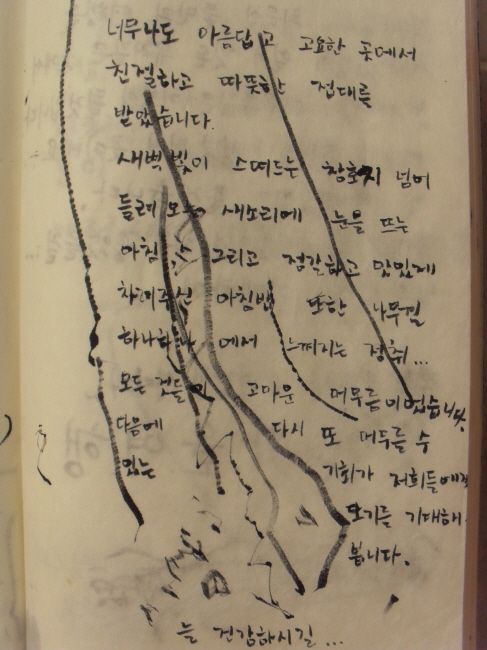 너무나도 아름답고 고요한 곳에서
친절하고 따뜻한 접대를
받았습니다.
새벽 빛이 스며드는 창호지 넘어
들려 오는 새소리에 눈을 뜨는
아침 그리고 정갈하고 맛있게
차려주신 아침밥 또한 나무결
하나하나 에서 느껴지는 정취...
모든 것들이 고마운 머무름이었습니다.
다음에 다시 또 머무를 수
있는 기회가 저희들에게
오기를 기대해
봅니다.
늘 건강하시길...